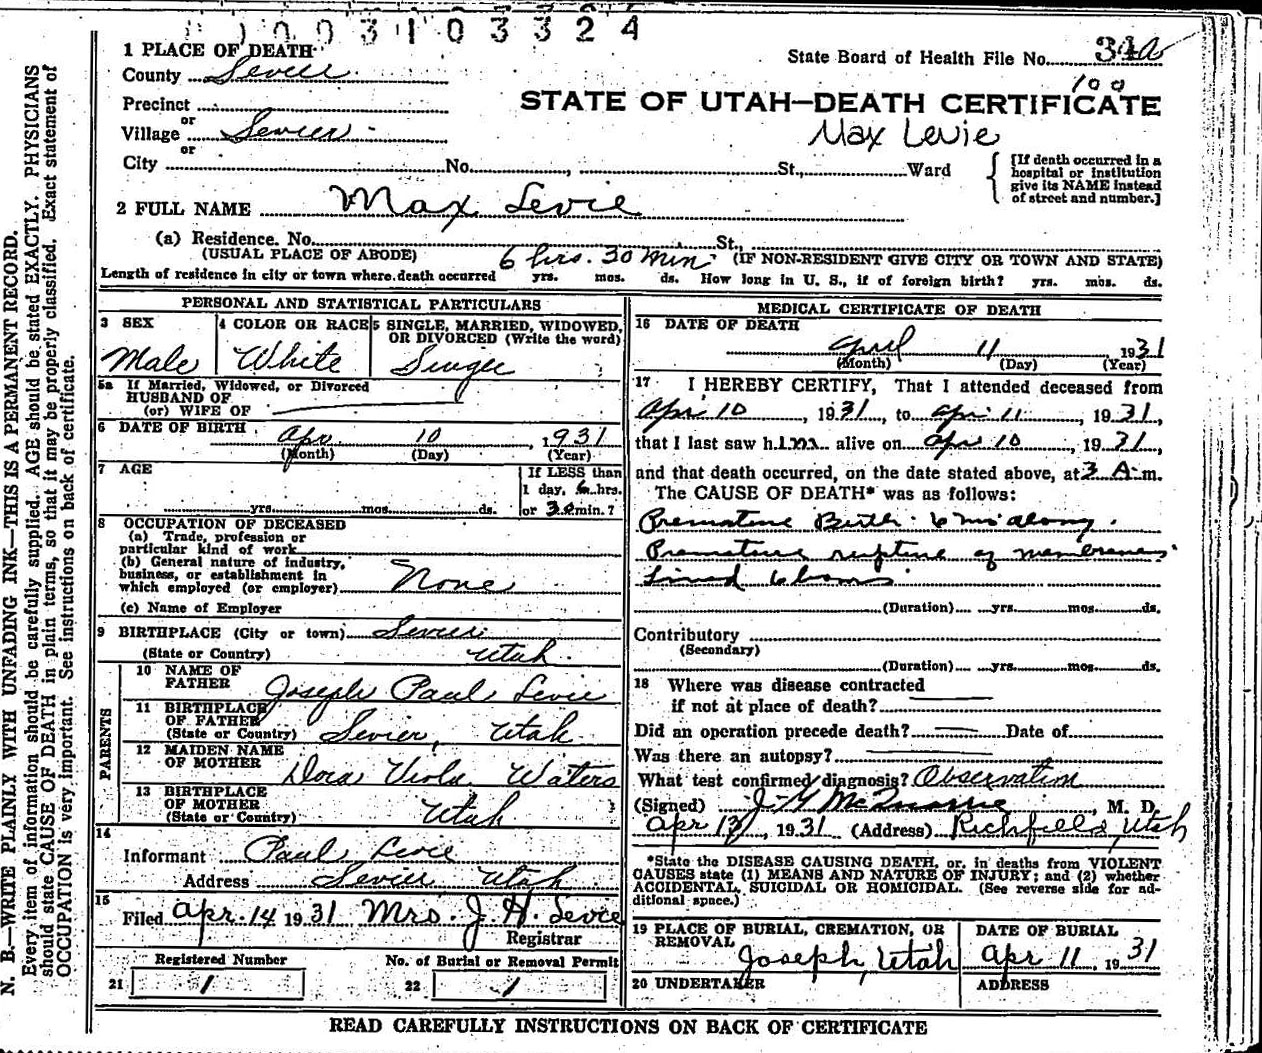 1003103324
1 PLACE OF DEATH
County Sevier
State Board of Health File No. 34a
100
Precinct
or
Village Sevier
or
STATE OF UTAH—DEATH CERTIFICATE
Max Levie
City No. , St., Ward
[If death occurred in a
hospital or institution
give its NAME instead
of street and number.]
2 FULL NAME Max Levie
(a) Residence. No. St.,
(USUAL PLACE OF ABODE) 6 hrs. 30 min. (IF NON-RESIDENT GIVE CITY OR TOWN AND STATE)
Length of residence in city or town where death occurred yrs. mos. ds. How long in U. S., if of foreign birth? yrs. mos. ds.
PERSONAL AND STATISTICAL PARTICULARS
3 SEX
Male
4 COLOR OR RACE
White
5 SINGLE, MARRIED, WIDOWED,
OR DIVORCED (Write the word)
Single
5a If Married, Widowed, or Divorced
HUSBAND OF
(or) WIFE OF
6 DATE OF BIRTH Apr. 10, 1931
(Month) (Day) (Year)
7 AGE
yrs. mos. ds.
If LESS than
1 day, 6 hrs.
or 30 min.?
8 OCCUPATION OF DECEASED
(a) Trade, profession or
particular kind of work
(b) General nature of industry,
business, or establishment in
which employed (or employer) None
(c) Name of Employer
9 BIRTHPLACE (City or town) Sevier
(State or Country) Utah.
PARENTS
10 NAME OF
FATHER Joseph Paul Levie
11 BIRTHPLACE
OF FATHER
(State or Country) Sevier, Utah
12 MAIDEN NAME
OF MOTHER Dora Viola Waters
13 BIRTHPLACE
OF MOTHER
(State or Country) Utah
14
Informant Paul Levie
Address Sevier, Utah
15
Filed Apr. 14 1931 Mrs. J. H. Levie
Registrar
Registered Number
21 1
No. of Burial or Removal Permit
22 1
MEDICAL CERTIFICATE OF DEATH
16 DATE OF DEATH
April 11 1931
(Month) (Day) (Year)
17 I HEREBY CERTIFY, That I attended deceased from
Apr. 10, 1931, to Apr. 11, 1931,
that I last saw him alive on Apr 10, 1931,
and that death occurred, on the date stated above, at 3 A. m.
The CAUSE OF DEATH* was as follows:
Premature Birth. 6 mo along.
Premature rupture of membranes.
Lived 6 hours.
(Duration) yrs. mos. ds.
Contributory
(Secondary)
(Duration) yrs. mos. ds.
18 Where was disease contracted
if not at place of death?
Did an operation precede death? Date of
Was there an autopsy?
What test confirmed diagnosis? Observation
(Signed) J. G. McQuarrie, M. D.
Apr 1931 (Address) Richfield, Utah
*State the DISEASE CAUSING DEATH, or, in deaths from VIOLENT
CAUSES state (1) MEANS AND NATURE OF INJURY; and (2) whether
ACCIDENTAL, SUICIDAL OR HOMICIDAL. (See reverse side for ad-
ditional space.)
19 PLACE OF BURIAL, CREMATION, OR
REMOVAL
Joseph, Utah
DATE OF BURIAL
Apr 11, 1931
20 UNDERTAKER
ADDRESS
READ CAREFULLY INSTRUCTIONS ON BACK OF CERTIFICATE
N. B.—WRITE PLAINLY WITH UNFADING INK—THIS IS A PERMANENT RECORD.
Every item of information should be carefully supplied. AGE should be stated EXACTLY. PHYSICIANS
should state CAUSE OF DEATH in plain terms, so that it may be properly classified. Exact statement of
OCCUPATION is very important. See instructions on back of certificate.